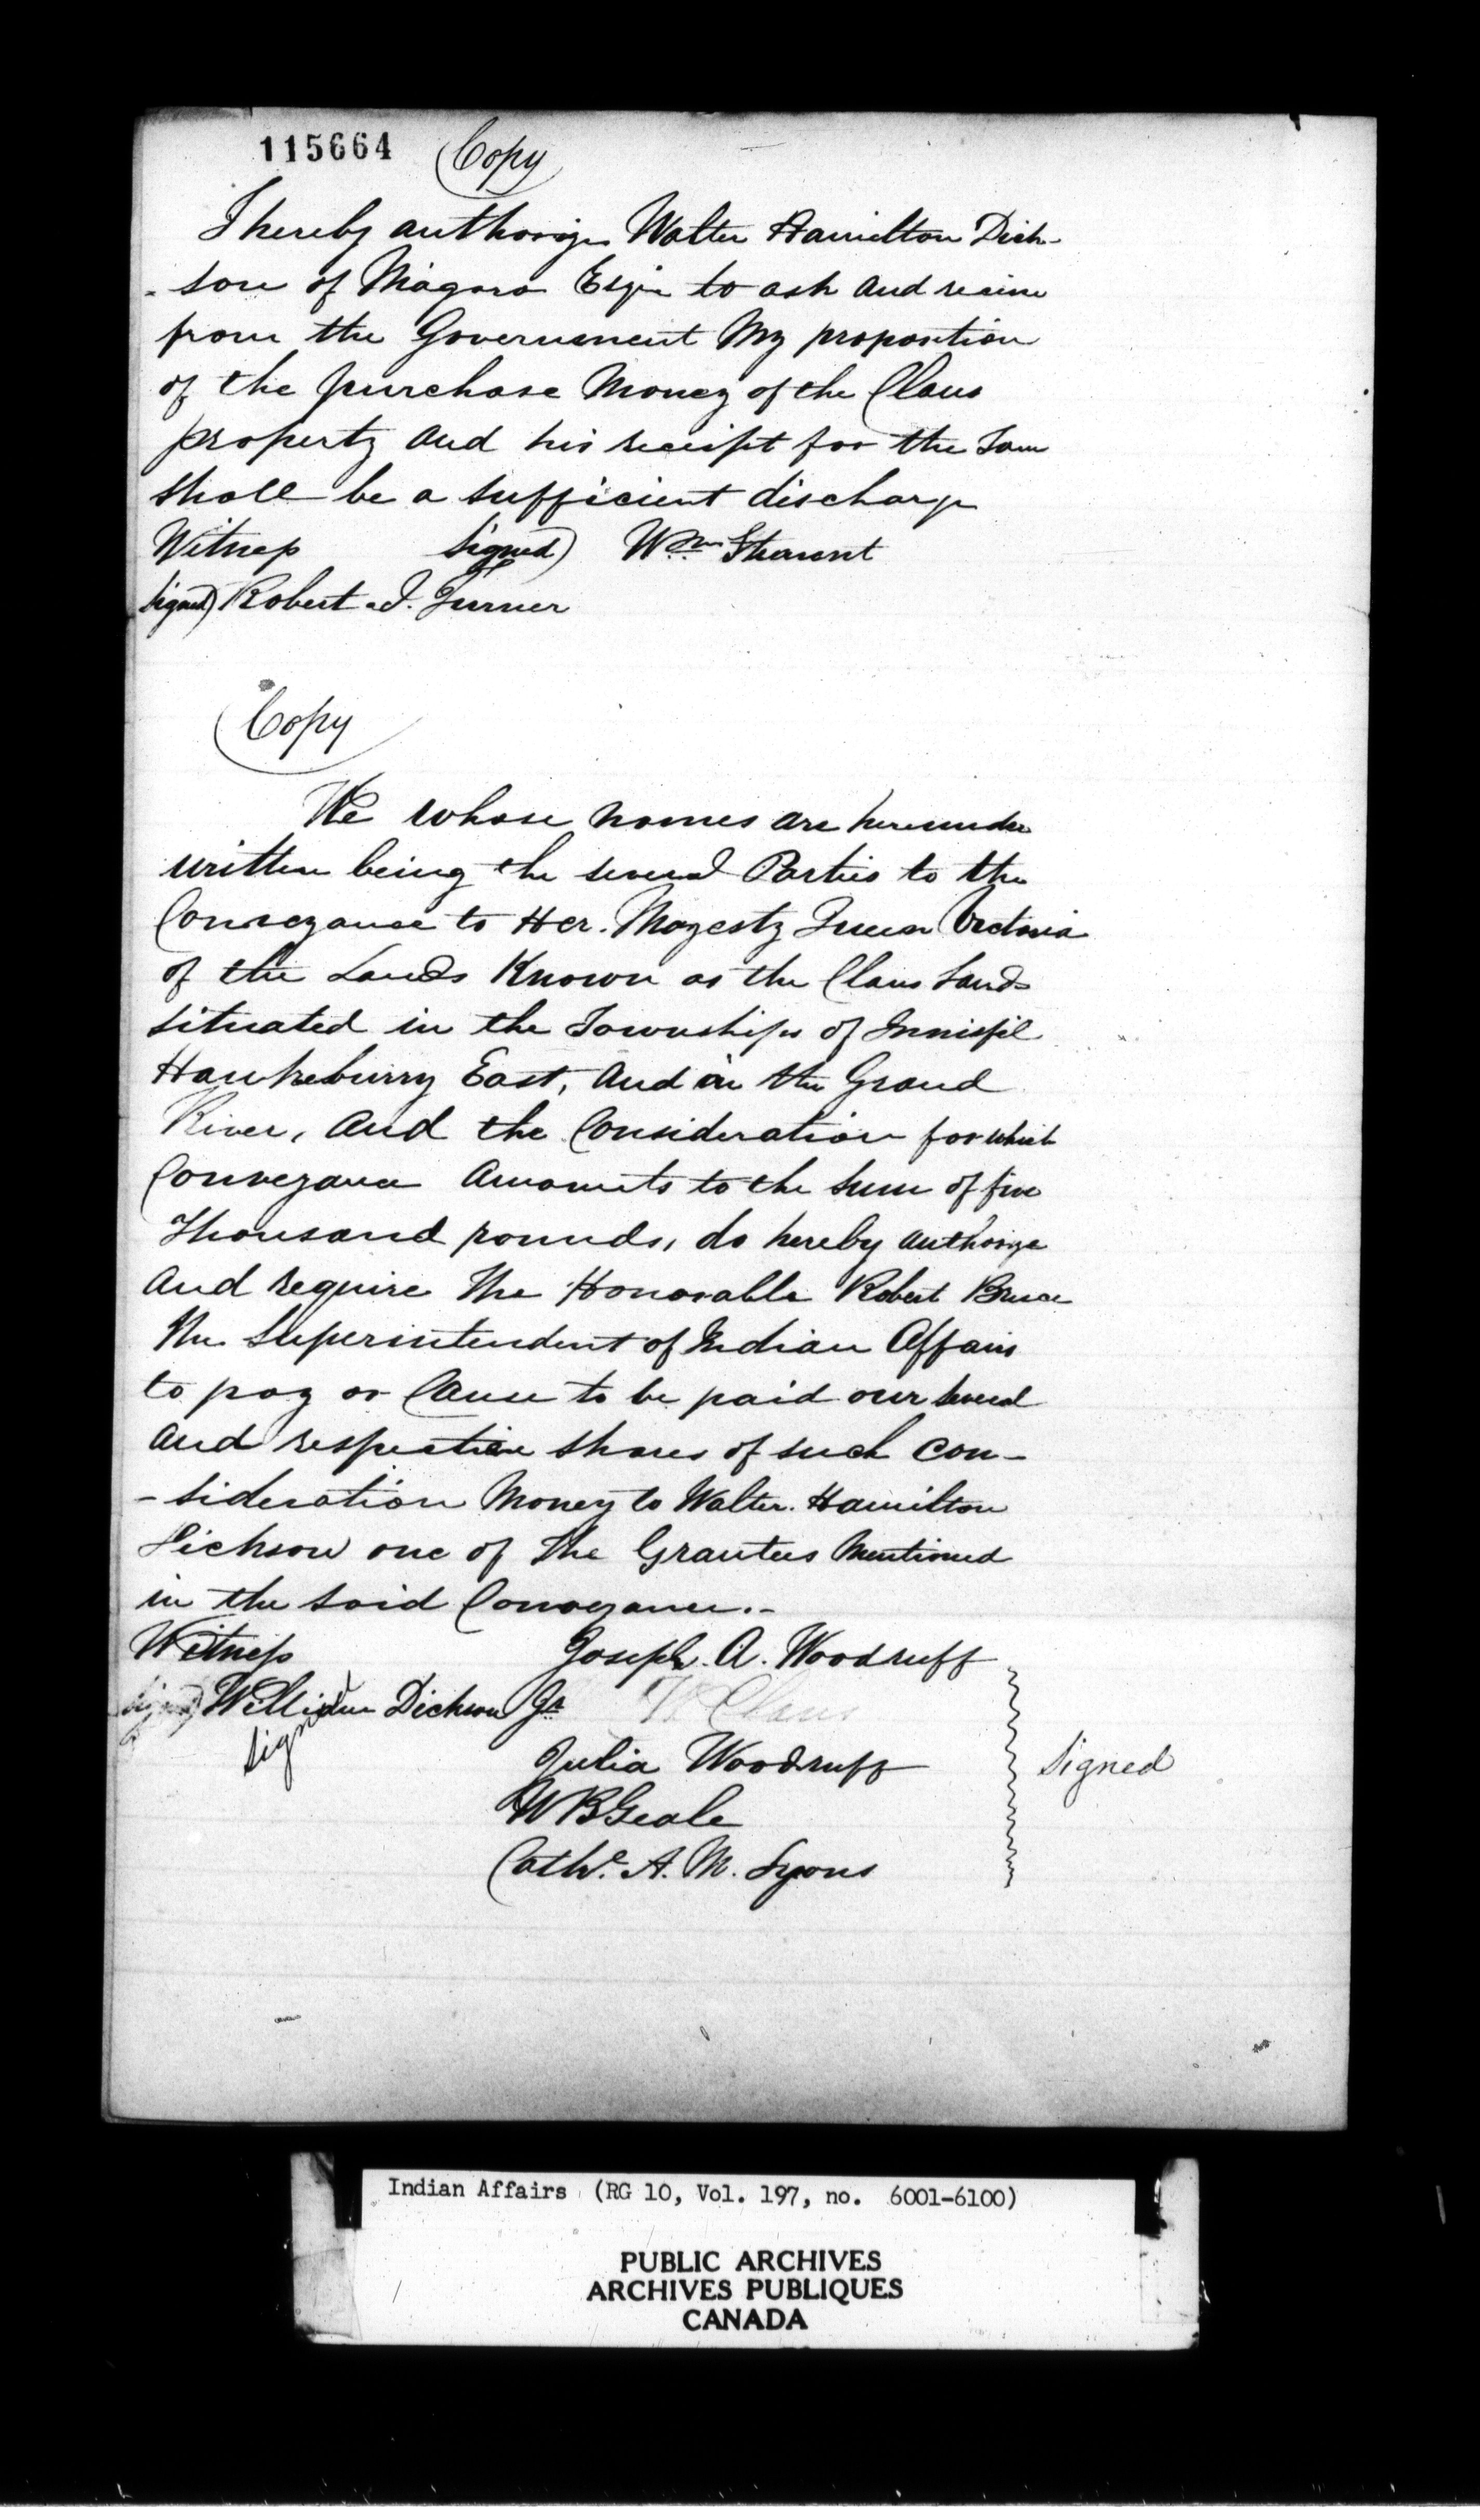 115664 Copy
I hereby authorize Walter Hamilton Dick-
-son of Niagara Esqr to ask and receive
from the Government My proportion
of the purchase Money of the Claus
property and his receipt for the Same
shall be a sufficient discharge
Witness Signed) Wm
Signed) Robert J. Turner
Copy
We whose names are hereunder
written being the several Parties to the
Conveyance to Her Magesty Queen Victoria
of the Lands Known as the Claus Lands
situated in the Townships of Innisfil
Hawkesburry East, and in the Grand
River, and the Consideration for which
Conveyance Amounts to the Sum of five
Thousand pounds, do hereby authorize
and require The Honorable Robert Bruce
The Superintendent of Indian Affairs
to pay or Cause to be paid our several
and respective shares of such con-
-sideration Money to Walter Hamilton
Dickson one of The Grantees Mentioned
in the said Conveyance.-
Witness Joseph A. Woodruff
Signed) William Dickson Jr W Claus
Signed
Julia Woodruff Signed
W B Geale
Cathe. A. M. Lyons
Indian Affairs (RG 10, Vol. 197, no. 6001-6100)
PUBLIC ARCHIVES
ARCHIVES PUBLIQUES
CANADA